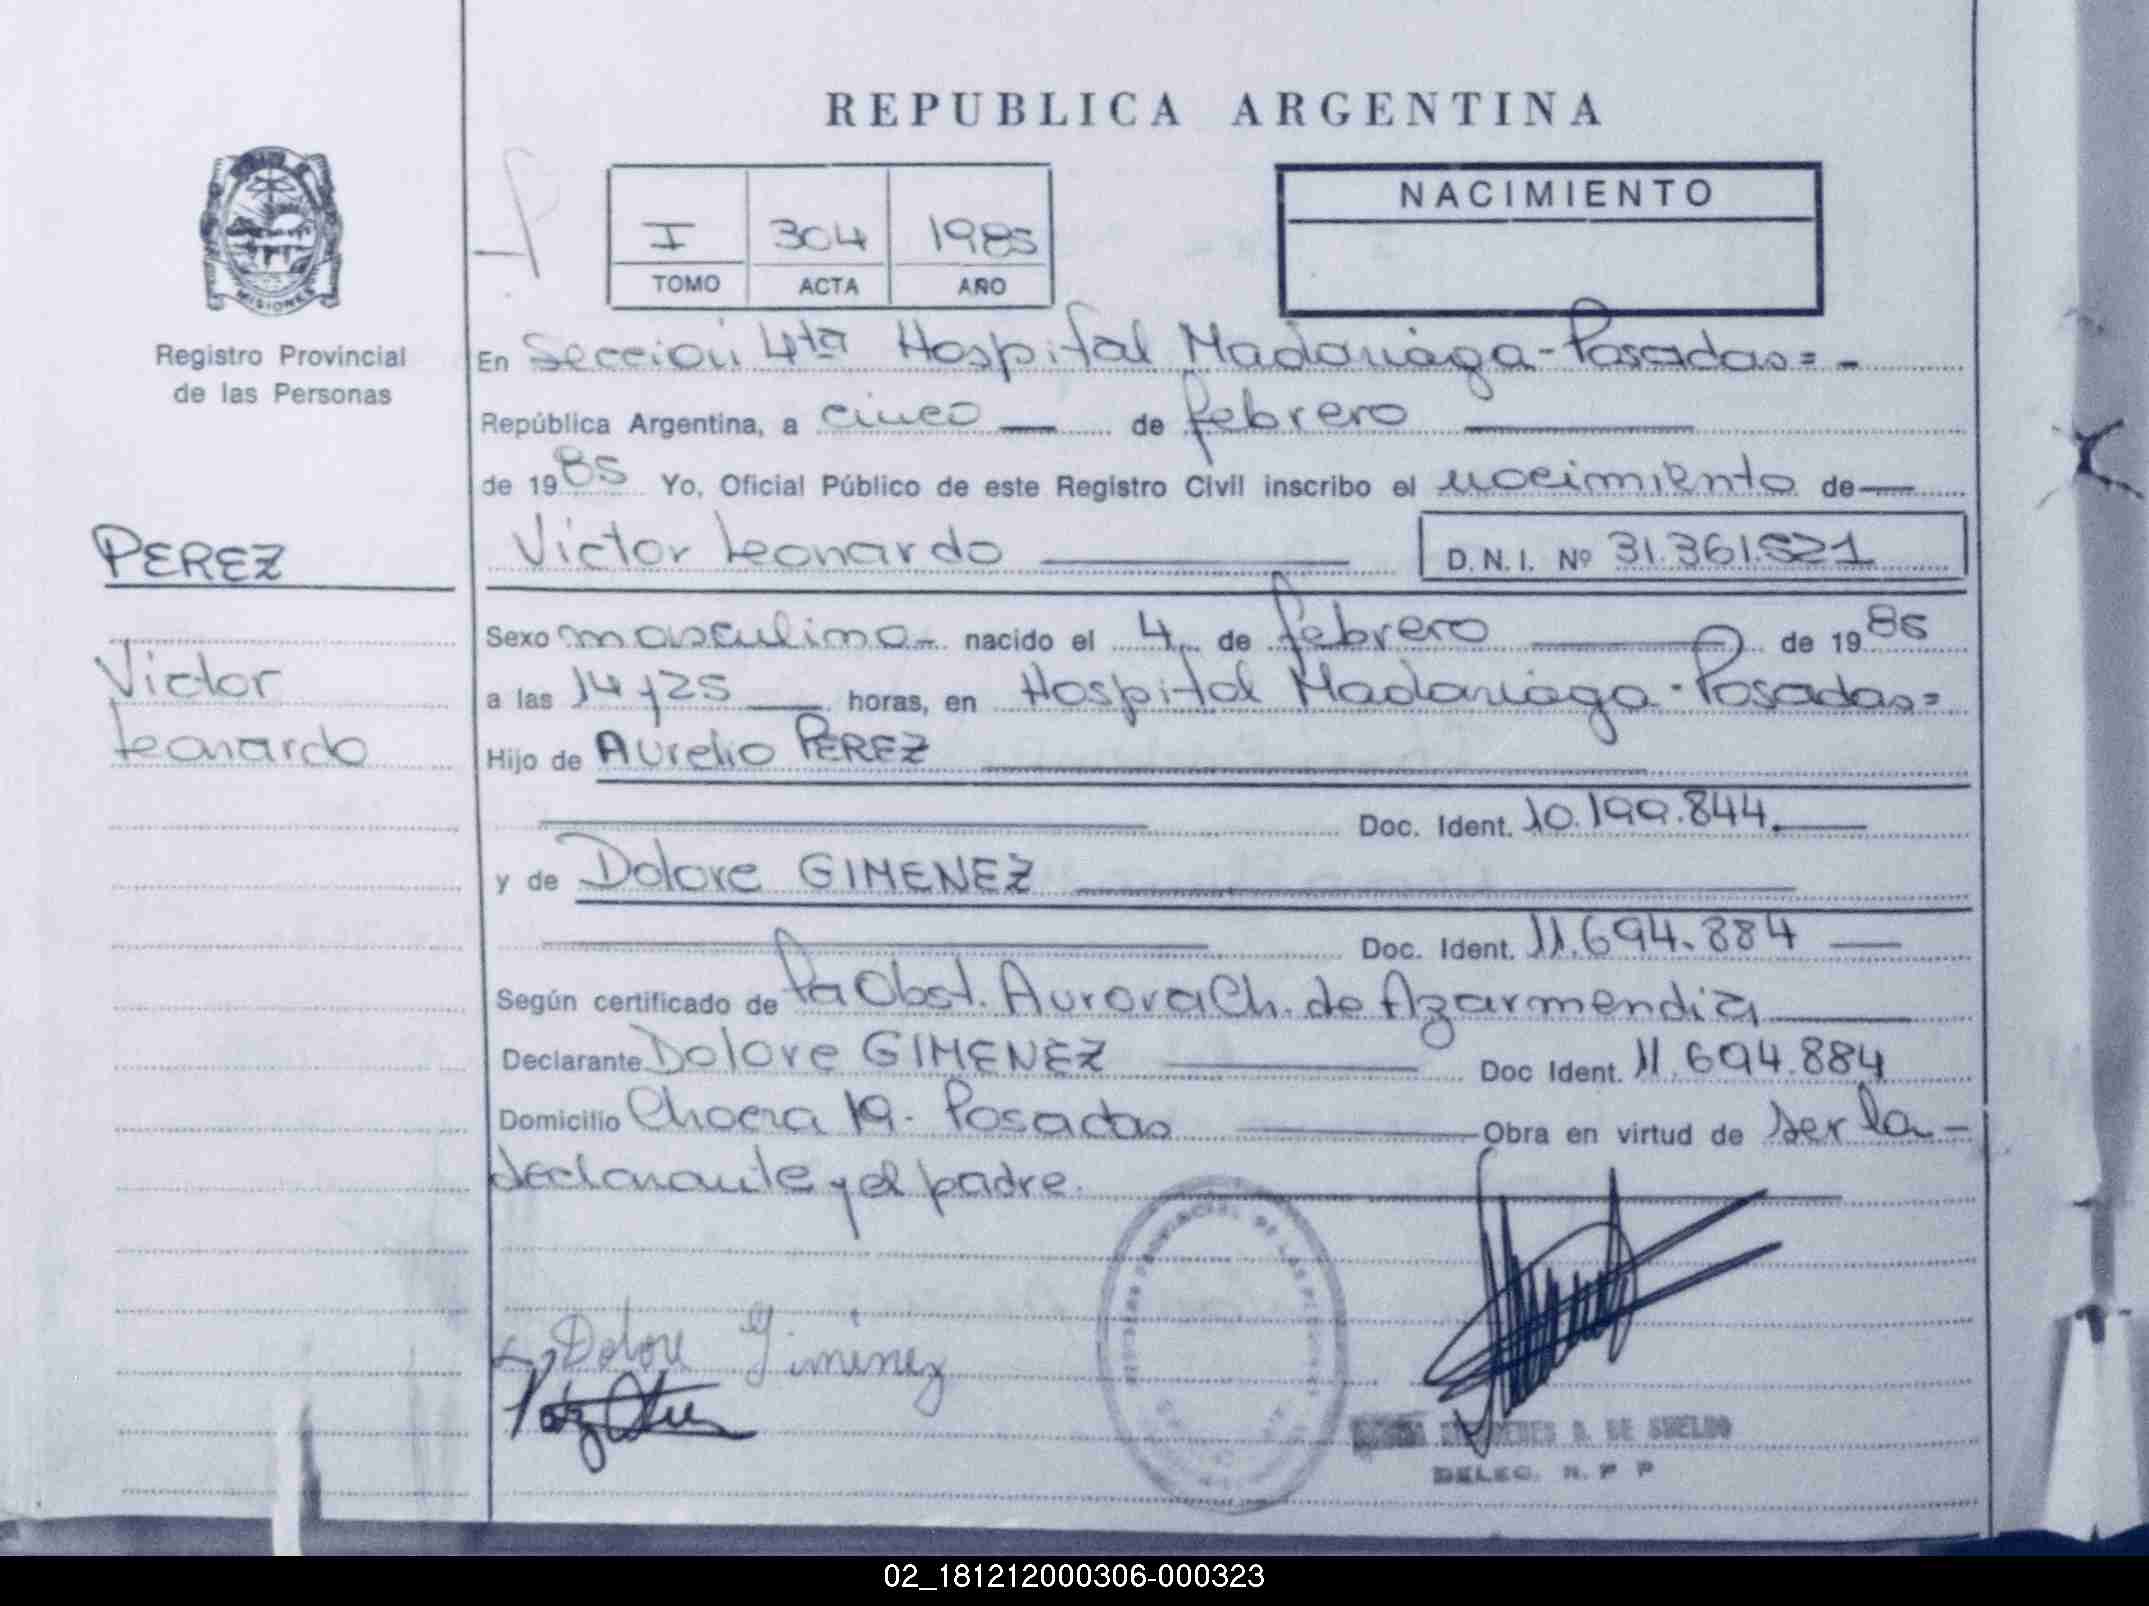 REPUBLICA ARGENTINA
NACIMIENTO
I 304 1985
TOMO ACTA AÑO
MISIONES
Registro Provincial
de las Personas
En Sección 4ta Hospital Madariaga - Posadas = -
República Argentina, a cinco — de febrero —
de 1985 Yo, Oficial Público de este Registro Civil inscribo el nacimiento de —
PEREZ
Victor Leonardo — D.N.I. Nº 31.361.521
Victor
Leonardo
Sexo masculino - nacido el 4 de febrero — de 1985
a las 14 y 25 — horas, en Hospital Madariaga - Posadas =
Hijo de Aurelio PEREZ —
— Doc. Ident. 10.199.844. —
y de Dolore GIMENEZ —
— Doc. Ident. 11.694.884 —
Según certificado de Pa Obst. Aurora Ch. de Azarmendia —
Declarante Dolore GIMENEZ — Doc Ident. 11.694.884
Domicilio Chacra 19 - Posadas — Obra en virtud de ser la -
declarante y el padre. —
Dolore Gimenez
DE SUELDO
DELEG. R. P P
02_181212000306-000323